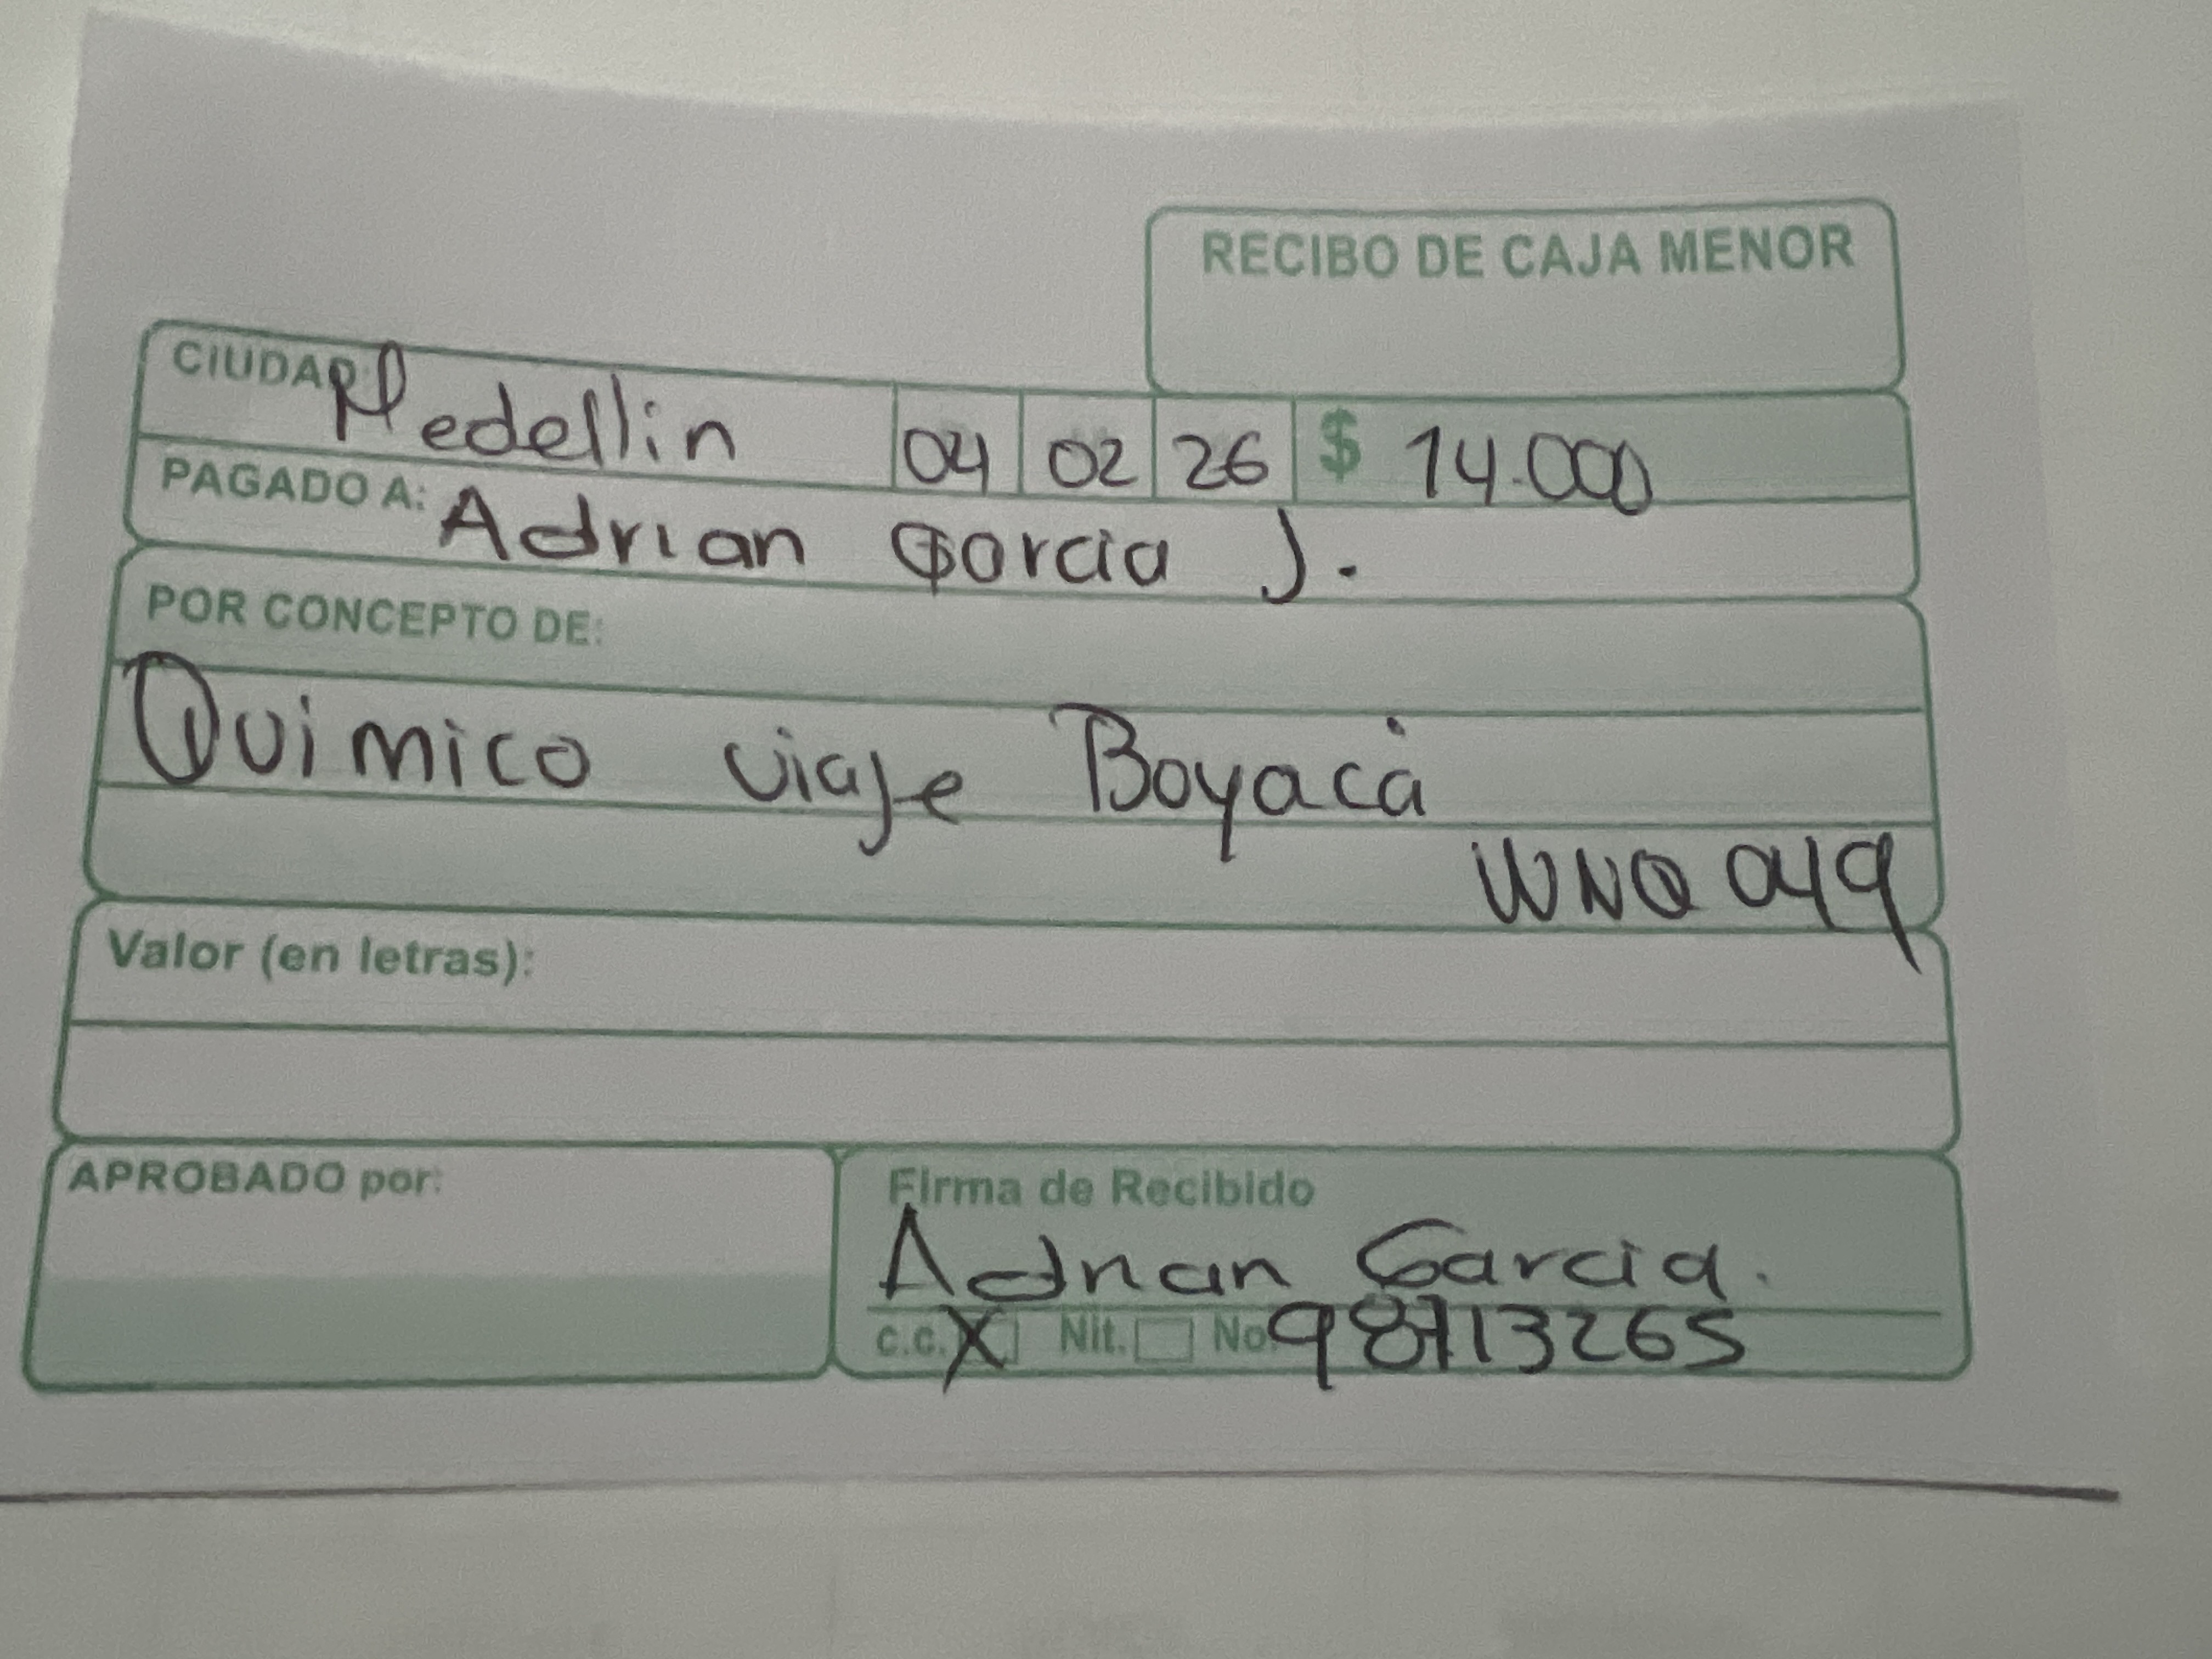 RECIBO DE CAJA MENOR
CIUDAD Medellin 04 02 26 $ 14.000
PAGADO A: Adrian Garcia J.
POR CONCEPTO DE:
Quimico viaje Boyacá
WNQ 049
Valor (en letras):
APROBADO por:
Firma de Recibido
Adrian Garcia.
c.c. X Nit. No. 98713265